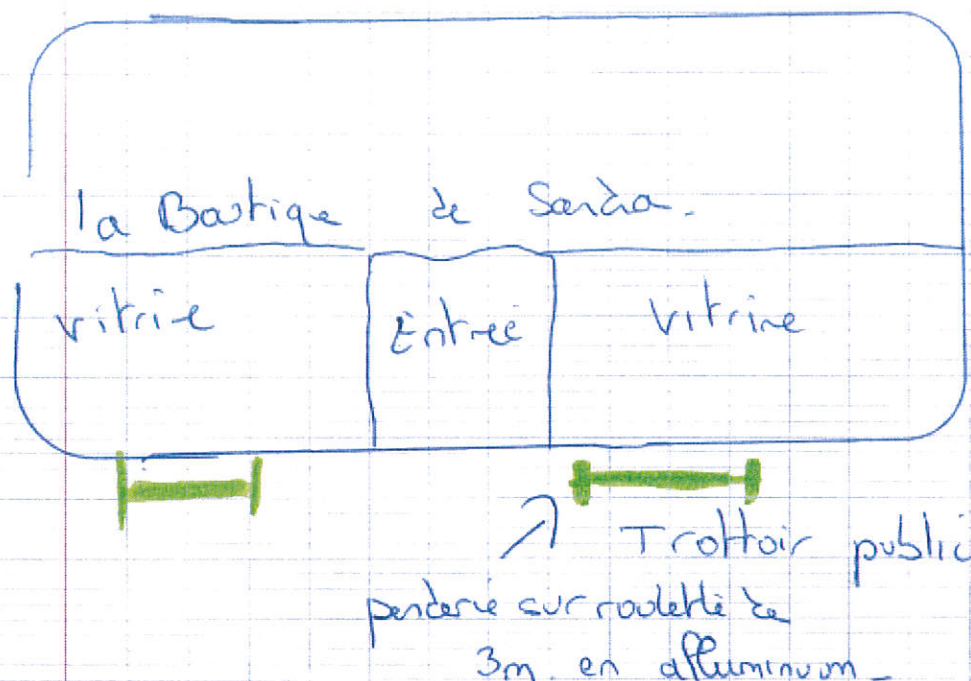 la Boutique de Sandra.
vitrine
Entrée
Vitrine
Trottoir public
penderie sur roulette de
3m. en alluminuum